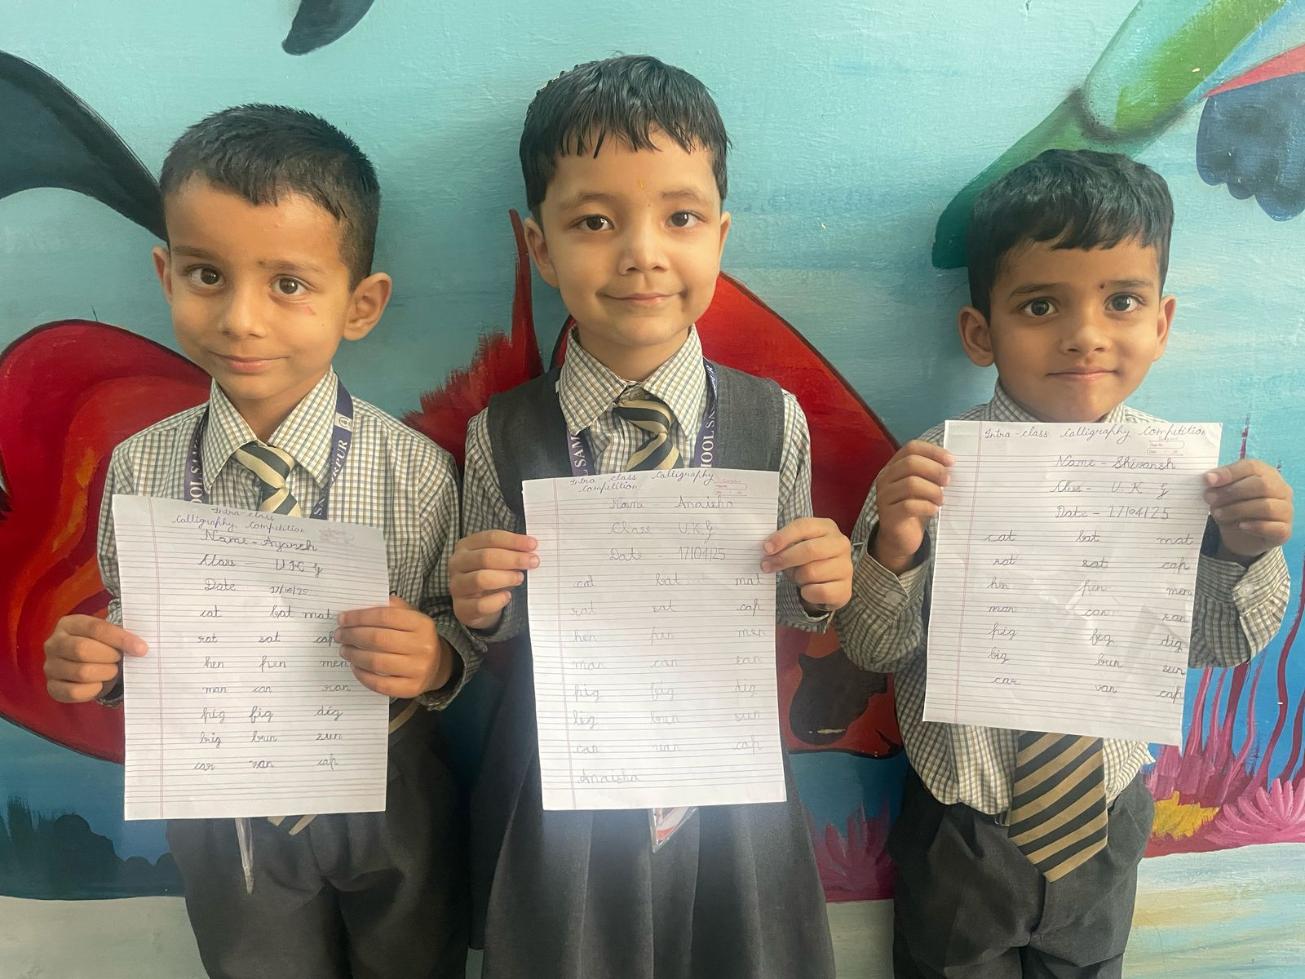 Intra-class
Calligraphy competition
Name - Ayansh
Class - U.K.G
Date 17/04/25
cat bat mat
rat sat cap
hen pen men
man can ran
pig fig dig
big bun sun
car van cap
Intra class Calligraphy
Competition
Name Anaisha
Class U.K.G
Date - 17/04/25
cat bat mat
rat sat cap
hen pen men
man can ran
pig fig dig
big bun sun
car van cap
Anaisha
Intra-class Calligraphy Competition
Name - Shivansh
Class - U.K.G
Date - 17/04/25
cat bat mat
rat sat cap
hen pen men
man can ran
pig fig dig
big bun sun
car van cap